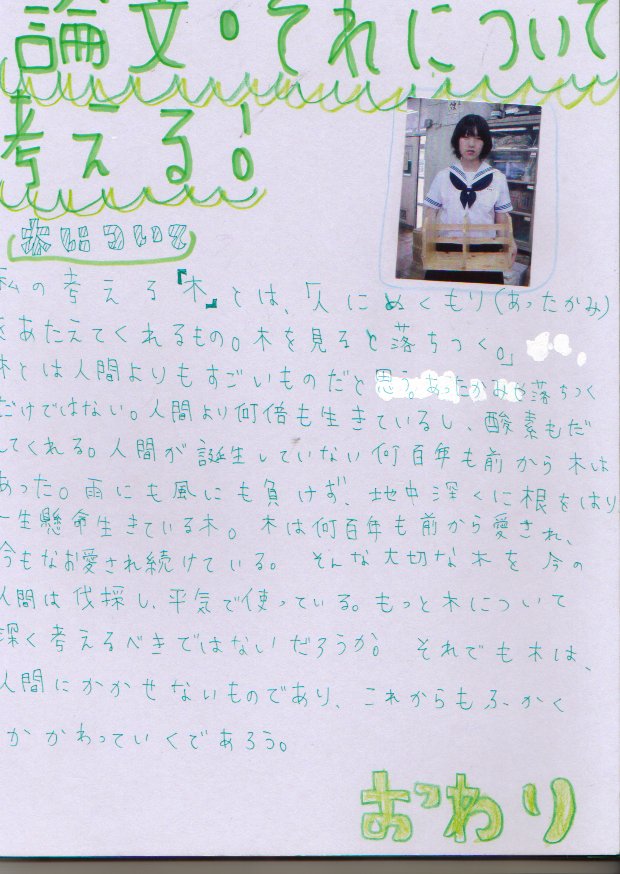 論文・それについて
考える!
木について
私の考える『木』とは、「人にぬくもり(あったかみ)
をあたえてくれるもの。木を見ると落ちつく。」
木とは人間よりもすごいものだと思う。あったかみや落ちつく
だけではない。人間より何倍も生きているし、酸素もだ
してくれる。人間が誕生していない何百年も前から木は
あった。雨にも風にも負けず、地中深くに根をはり、
一生懸命生きている木。木は何百年も前から愛され、
今もなお愛され続けている。そんな大切な木を今の
人間は伐採し、平気で使っている。もっと木について
深く考えるべきではないだろうか。それでも木は、
人間にかかせないものであり、これからもふかく
かかわっていくであろう。
おわり